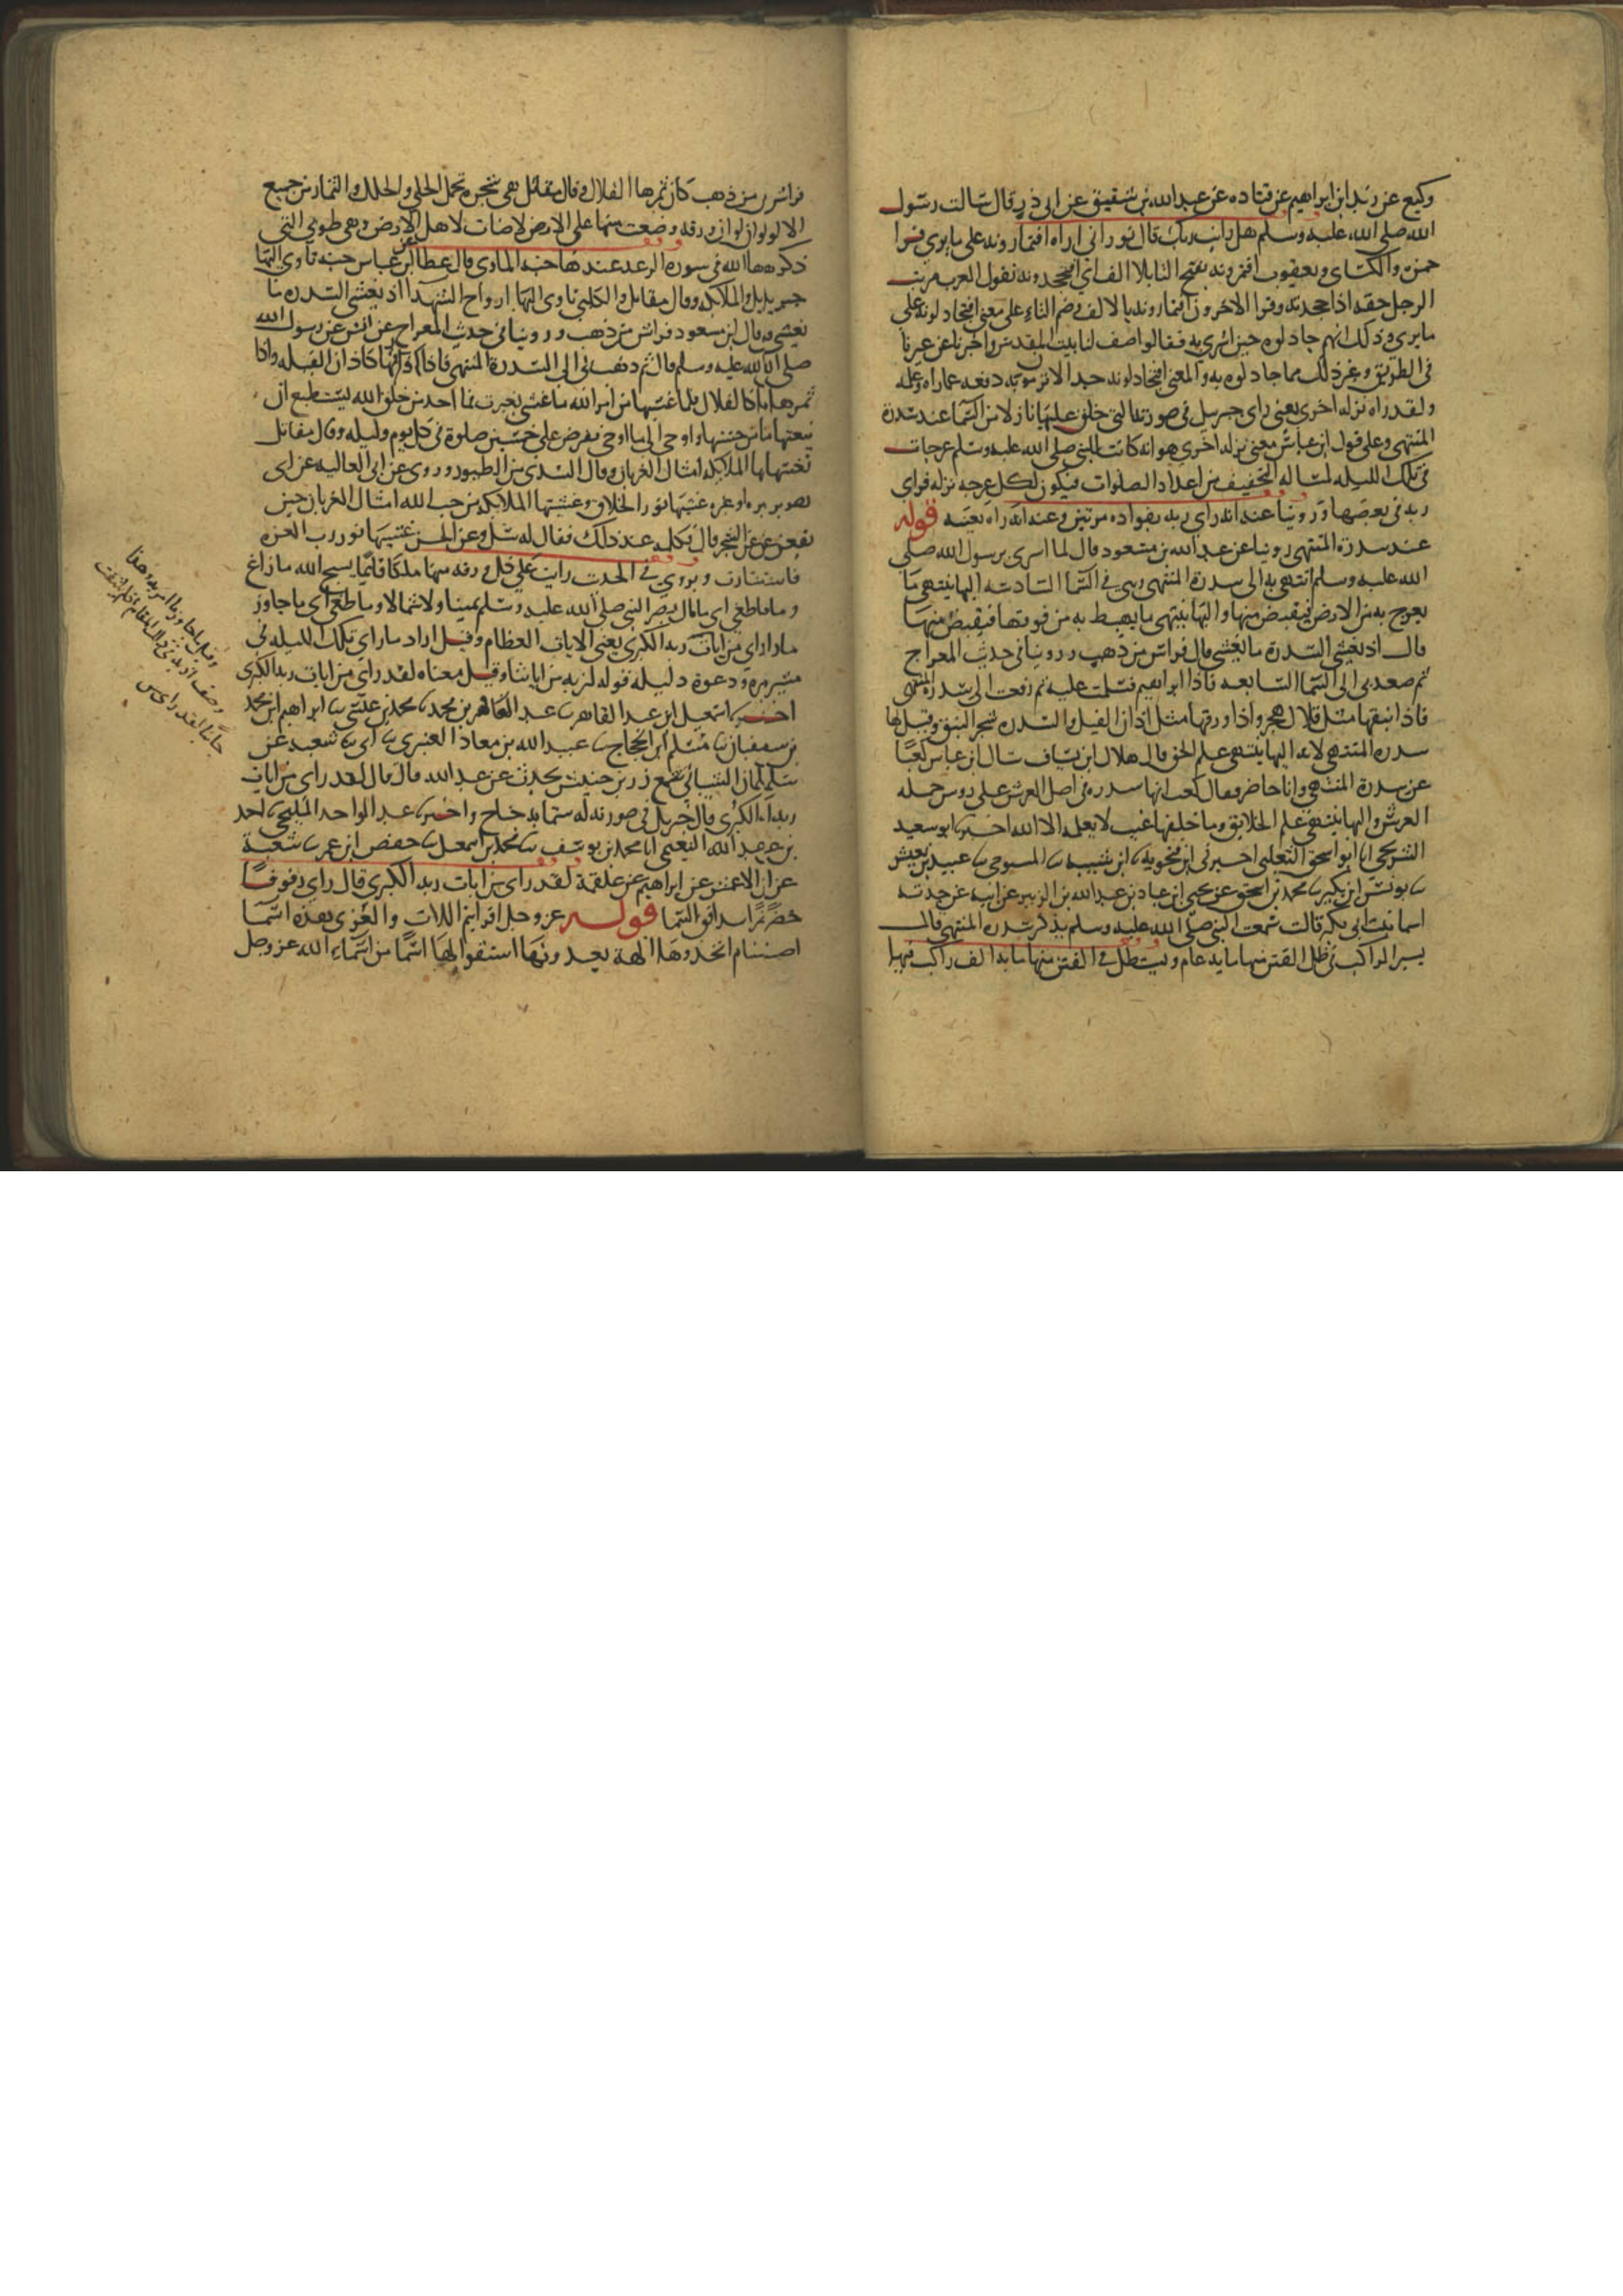 وكيع عن يزيد ابن ابراهيم عن قتاده عن عبدالله بن شقيق عن ابى ذر قال سالت رسول
الله صلى الله عليه وسلم هل رايت ربك قال نور انى اراه افتمارونه على ما يرى قرا
حمزة والكساى ويعقوب افتمرونه بفتح التا بلا الف اى افتجحدونه تقول العرب مريت
الرجل حقه اذا جحدته وقرا الاخرون افتمارونه بالالف وضم التاء على معنى افتجادلونه على
ما يرى وذلك انهم جادلوه حين اسرى به فقالوا صف لنا بيت المقدس واخبرنا عن عيرنا
فى الطريق وغير ذلك مما جادلوه به والمعنى افتجادلونه جدالا ترومون به دفعه عما راه وعلمه
ولقد راه نزله اخرى يعنى راى جبريل فى صورته التى خلق عليها نازلا من السما عند سدرة
المنتهى وعلى قول ابن عباس معنى نزله اخرى هو انه كانت للنبى صلى الله عليه وسلم عرجات
فى تلك الليله لمساله التخفيف من اعداد الصلوات فيكون لكل عرجه نزله فراى
ربه فى بعضها وروينا عنه انه راى ربه بفواده مرتين وعنه انه راه بعينه قوله
عند سدرة المنتهى روينا عن عبدالله بن مسعود قال لما اسرى برسول الله صلى
الله عليه وسلم انتهى به الى سدرة المنتهى وهى فى السما السادسه اليها ينتهى ما
يعرج به من الارض فيقبض منها واليها ينتهى ما يهبط به من فوقها فيقبض منها
قال اذ يغشى السدرة ما يغشى قال فراش من ذهب وروينا فى حديث المعراج
ثم صعد بى الى السما السابعه فاذا ابراهيم فسلمت عليه ثم رفعت الى سدرة المنتهى
فاذا نبقها مثل قلال هجر واذا ورقها مثل اذان الفيل والسدره شجر النبق وقيل لها
سدره المنتهى لانه اليها ينتهى علم الخلق قال هلال ابن يساف سال ابن عباس كعبا
عن سدرة المنتهى وانا حاضر فقال كعب انها سدره فى اصل العرش على روس حمله
العرش واليها ينتهى علم الخلايق وما خلفها غيب لا يعلمه الا الله اخبرنا ابو سعيد
الشريحى انا ابو اسحق الثعلبى اخبرنى ابن فنجويه ابن شيبه المسوحى عبيد بن يعيش
يونس ابن بكير محمد بن اسحق عن يحيى ابن عباد بن عبدالله بن الزبير عن ابيه عن جدته
اسما بنت ابى بكر قالت سمعت النبى صلى الله عليه وسلم يذكر سدره المنتهى قال
يسير الراكب فى ظل الفنن منها مايه عام ويستظل فى الفنن منها مايه الف راكب فيها
فراش من ذهب كان ثمرها القلال وقال مقاتل هى شجره تحمل الحلى والحلل والثمار من جميع
الالوان لو ان ورقه وضعت منها على الارض لاضات لاهل الارض وهى طوبى التى
ذكرها الله فى سورة الرعد عندها جنه الماوى قال عطا عن ابن عباس جنه ياوى اليها
جبريل والملايكه وقال مقاتل والكلبى تاوى اليها ارواح الشهدا اذ يغشى السدره ما
يغشى قال ابن مسعود فراش من ذهب وروينا فى حديث المعراج عن انس عن رسول الله
صلى الله عليه وسلم قال ثم ذهب بى الى السدرة المنتهى فاذا ورقها كاذان الفيله واذا
ثمرها كالقلال فلما غشيها من امر الله ما غشى تغيرت فما احد من خلق الله يستطيع ان
ينعتها من حسنها واوحى الى ما اوحى ففرض على خمسين صلوة فى كل يوم وليله وقال مقاتل
تغشاها الملايكه امثال الغربان وقال السدى من الطيور وروى عن ابى العاليه عن ابى
هريره او غيره غشيها نور الخلاق وغشيتها الملايكه من حب الله امثال الغربان حين
يقعن على الشجر قال فكلمه عند ذلك فقال له سل وعن الحسن غشيها نور رب العزه
فاستنارت ويروى فى الحديث رايت على كل ورقه منها ملكا قائما يسبح الله ما زاغ
وما طغى اى ما مال بصر النبى صلى الله عليه وسلم يمينا ولا شمالا وما طغى اى ما جاوز
ما راى لقد راى من ايات ربه الكبرى يعنى الايات العظام وقيل اراد ما راى تلك الليله فى
مسيره وعوده دليله قوله لنريه من اياتنا وقيل معناه لقد راى من ايات ربه الكبرى
اخبرنا اسمعيل ابن عبدالقاهر عبدالغافر بن محمد محمد بن عيسى ابراهيم ابن محمد
بن سفيان مسلم ابن الحجاج عبيدالله بن معاذ العنبرى ابى شعبه عن
سليمان الشيبانى سمع زر بن حبيش يحدث عن عبدالله قال قال لقد راى من ايات
ربه الكبرى قال جبريل فى صورته له ستمايه جناح واخبرنا عبدالواحد المليحى احمد
بن عبدالله النعيمى انا محمد بن يوسف محمد بن اسمعيل حفص ابن عمر شعبة
عن الاعمش عن ابراهيم عن علقمة لقد راى من ايات ربه الكبرى قال راى رفرفا
خضرا سد افق السما قوله عز وجل افرايتم اللات والعزى هذه اسما
اصنام اتخذوها الهة يعبدونها اشتقوا لها اسما من اسماء الله عز وجل
وقيل ما جاوز ما امر به وهذا
وصف ادبه فى ذلك المقام اذ لم يلتفت
جانبا لقد راى من